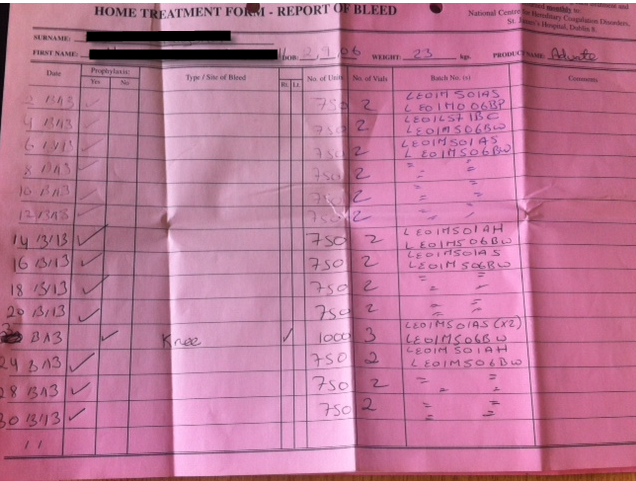 HOME TREATMENT FORM - REPORT OF BLEED
National Centre for Hereditary Coagulation Disorders,
St. James's Hospital, Dublin 8.
SURNAME:
FIRST NAME: DOB: 2,9,06 WEIGHT: 23 kgs. PRODUCT NAME: Advate
Date Prophylaxis: Yes No Type / Site of Bleed Rt. Lt. No. of Units No. of Vials Batch No. (s) Comments
2 /3/13 ✓ 750 2 LE01M501AS
LE01M006BP
4 /3/13 ✓ 750 2
LE01M506BW
6 /3/13 ✓ 750 2 LE01M501AS
LE01M506BW
8 /3/13 ✓ 750 2 " "
10 /3/13 ✓ 750 2 " "
12 /3/13 ✓ 750 2 " "
14 /3/13 ✓ 750 2 LE01M501AH
LE01M506BW
16 /3/13 ✓ 750 2 LE01M501AS
LE01M506BW
18 /3/13 ✓ 750 2 " "
" "
20 /3/13 ✓ 750 2 " "
" "
/3/13 ✓ Knee ✓ 1000 3 LE01M501AS (x2)
LE01M506BW
24 /3/13 ✓ 750 2 LE01M501AH
LE01M506BW
28 /3/13 ✓ 750 2 " "
" "
30 /3/13 ✓ 750 2 " "
" "
/ /